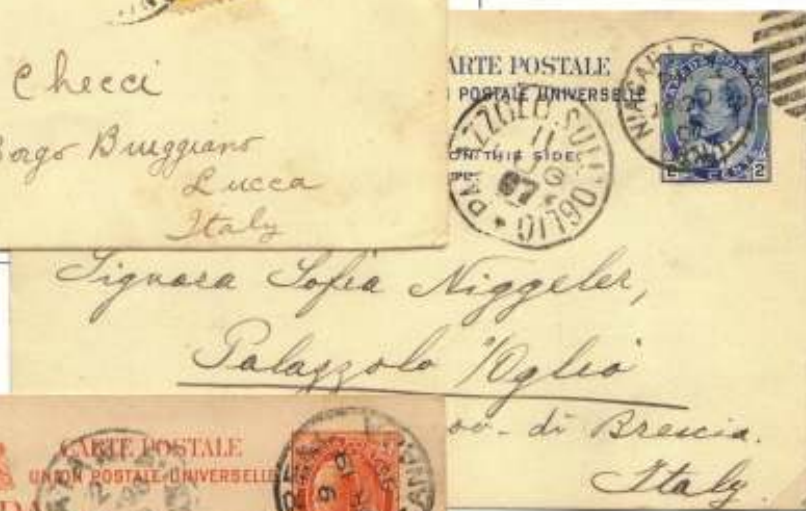 Checci
Borgo Buggiano
Lucca
Italy
ARTE POSTALE
POSTALE UNIVERSELLE
ON THIS SIDE
PALAZZOLO SULL'OGLIO
11
07
NIAGARA
2
2
Signora Sofia Niggeler,
Palazzolo s/Oglio
ov- di Brescia.
Italy
CARTE POSTALE
UNION POSTALE UNIVERSELLE
DA